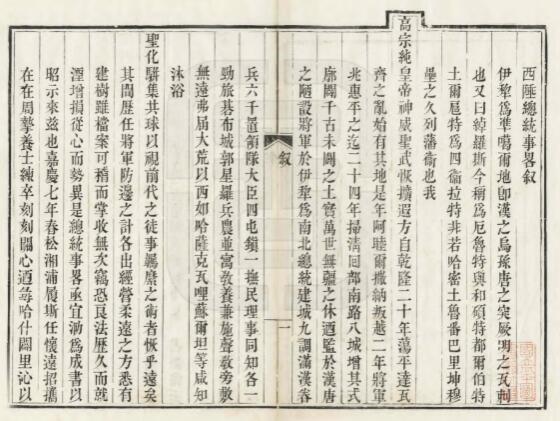 西陲總統事畧叙
伊犂為凖噶爾地卽漢之烏孫唐之突厥明之瓦剌
也又曰綽羅斯今稱為厄魯特與和碩特都爾伯特
土爾扈特為四衞拉特非若哈密土魯番巴里坤穆
壘之久列藩衞也我
高宗純皇帝神威聖武恢擴遐方自乾隆二十年蕩平達瓦
齊之亂始有其地是年阿睦爾撒納叛越二年將軍
兆惠平之迄二十四年掃清回部南路八城增其式
廓闢千古未闢之土實萬世無疆之休遹監於漢唐
之陋設將軍於伊犂為南北總統建城九調滿漢眷
叙
一
兵六千置領隊大臣四屯鎮一撫民理事同知各一
勁旅碁布城郭星羅兵農並寓教養兼施聲敎旁敷
無遠弗屆大荒以西如哈薩克瓦哩蘇爾坦等咸知
沐浴
聖化駢集共球以視前代之徒事羈縻之術者恢乎遠矣
其間歷任將軍防邊之計各出經營柔遠之方悉有
建樹雖檔案可稽而掌收無次竊恐良法歷久而就
湮增損從心而勢異是總統事畧亟宜泐為成書以
昭示來兹也嘉慶七年春松湘浦履斯任懷遠招攜
在在周摯養士練卒刻刻關心迺每哈什闢里沁以